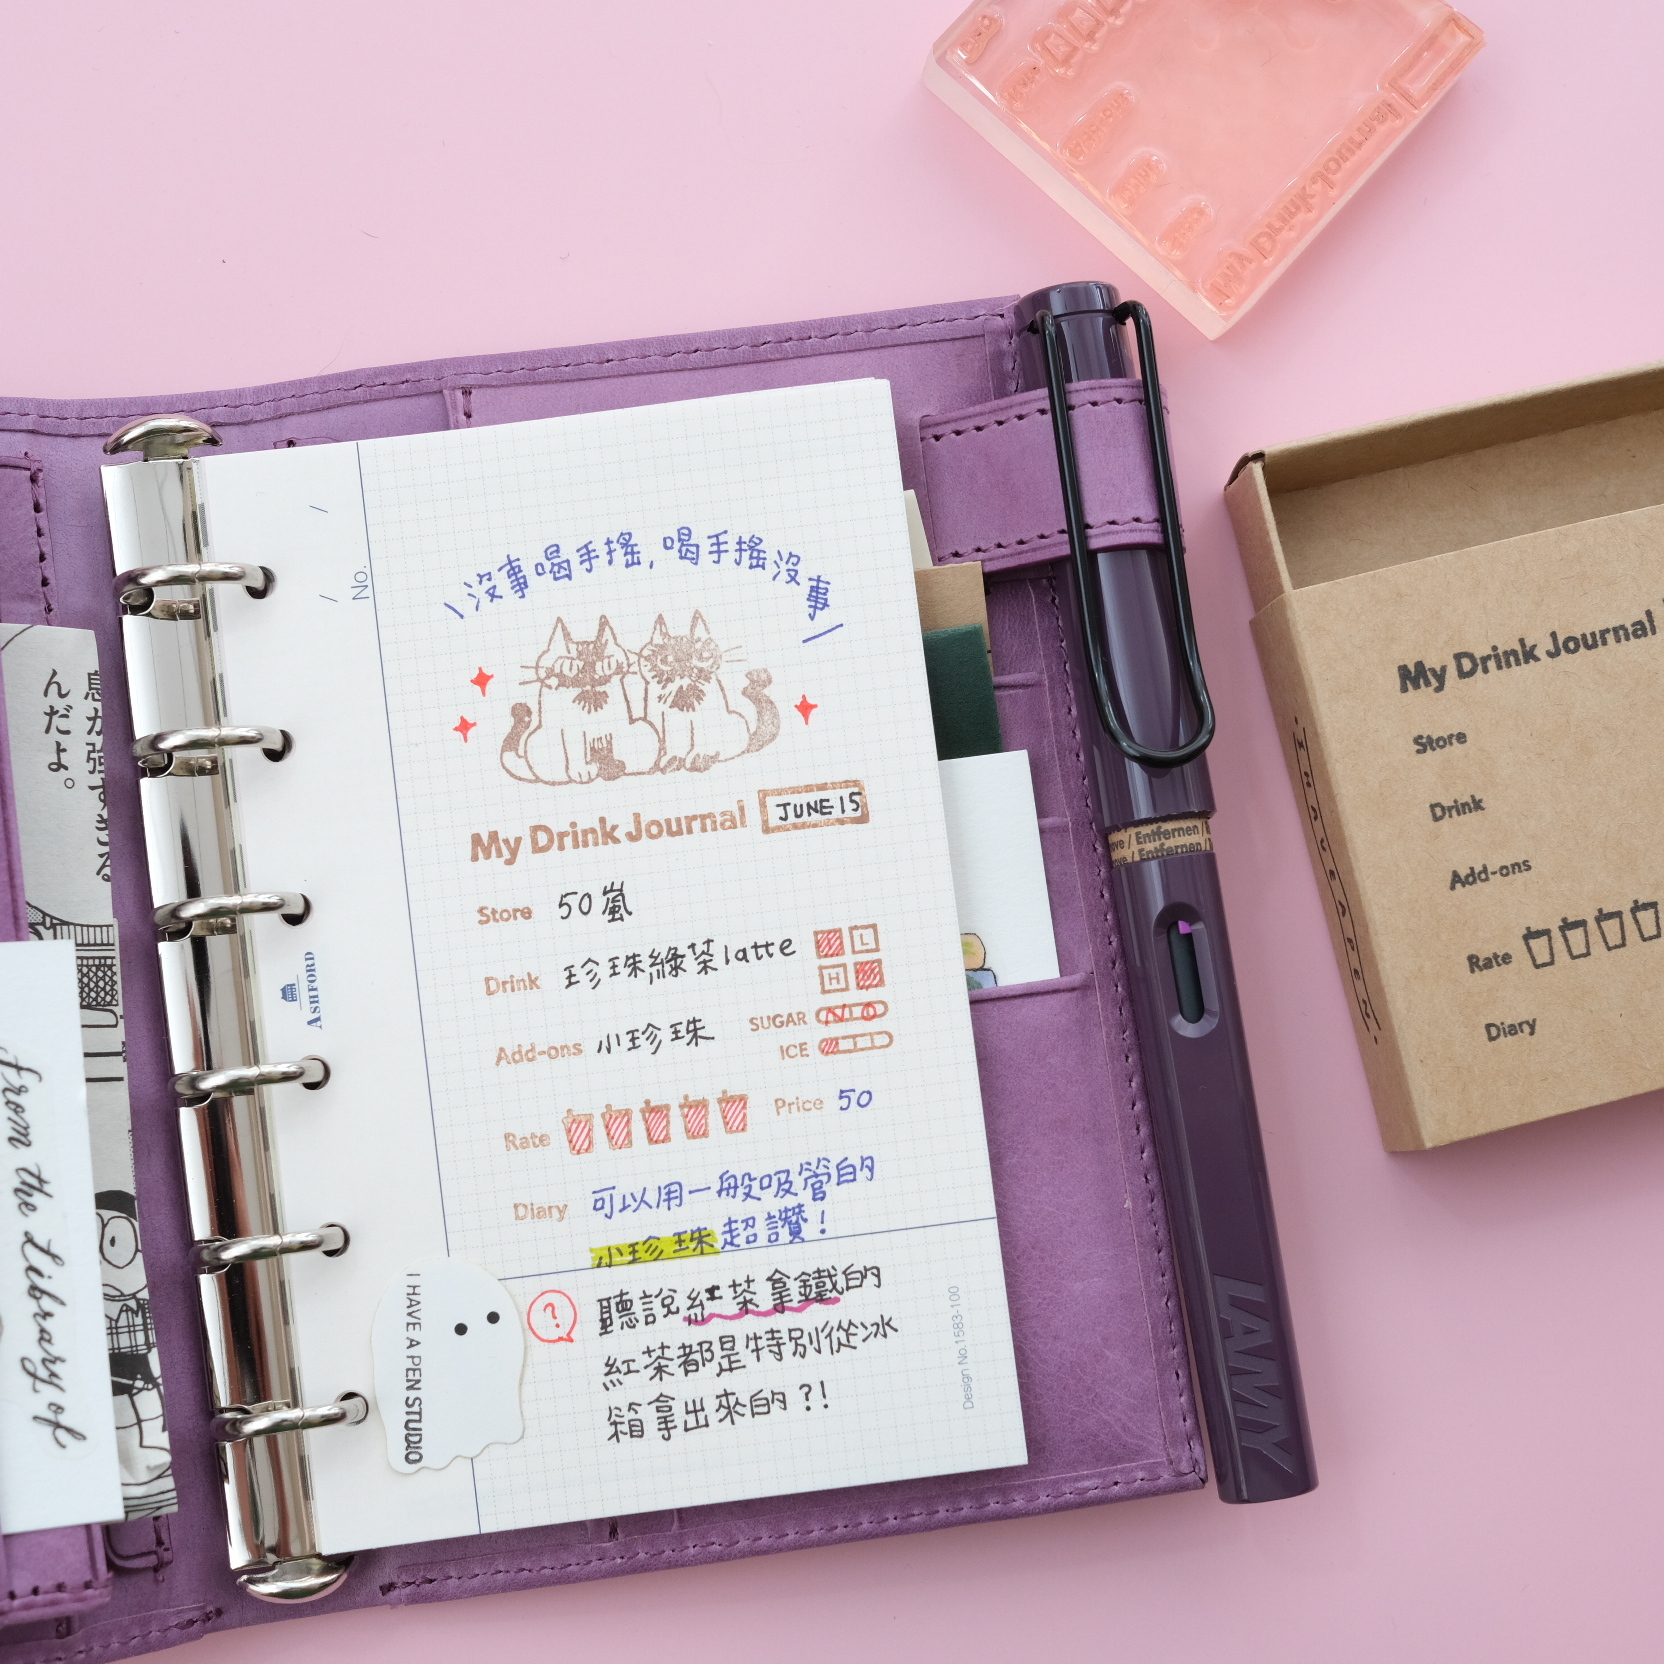 息が強すぎる
んだよ。
from the Library of
No.
ASHFORD
\沒事喝手搖,喝手搖沒事/
My Drink Journal JUNE 15
Store 50嵐
Drink 珍珠綠茶latte
L
H
Add-ons 小珍珠
SUGAR NO
ICE
Rate
Price 50
Diary 可以用一般吸管的
小珍珠超讚!
? 聽說紅茶拿鐵的
紅茶都是特別從冰
箱拿出來的?!
I HAVE A PEN STUDIO
Design No.1583-100
ove / Entfernen /
ove / Entfernen /
LAMY
My Drink Journal
My Drink Journal
Store
Drink
Add-ons
Rate
Diary
I HAVE A PEN